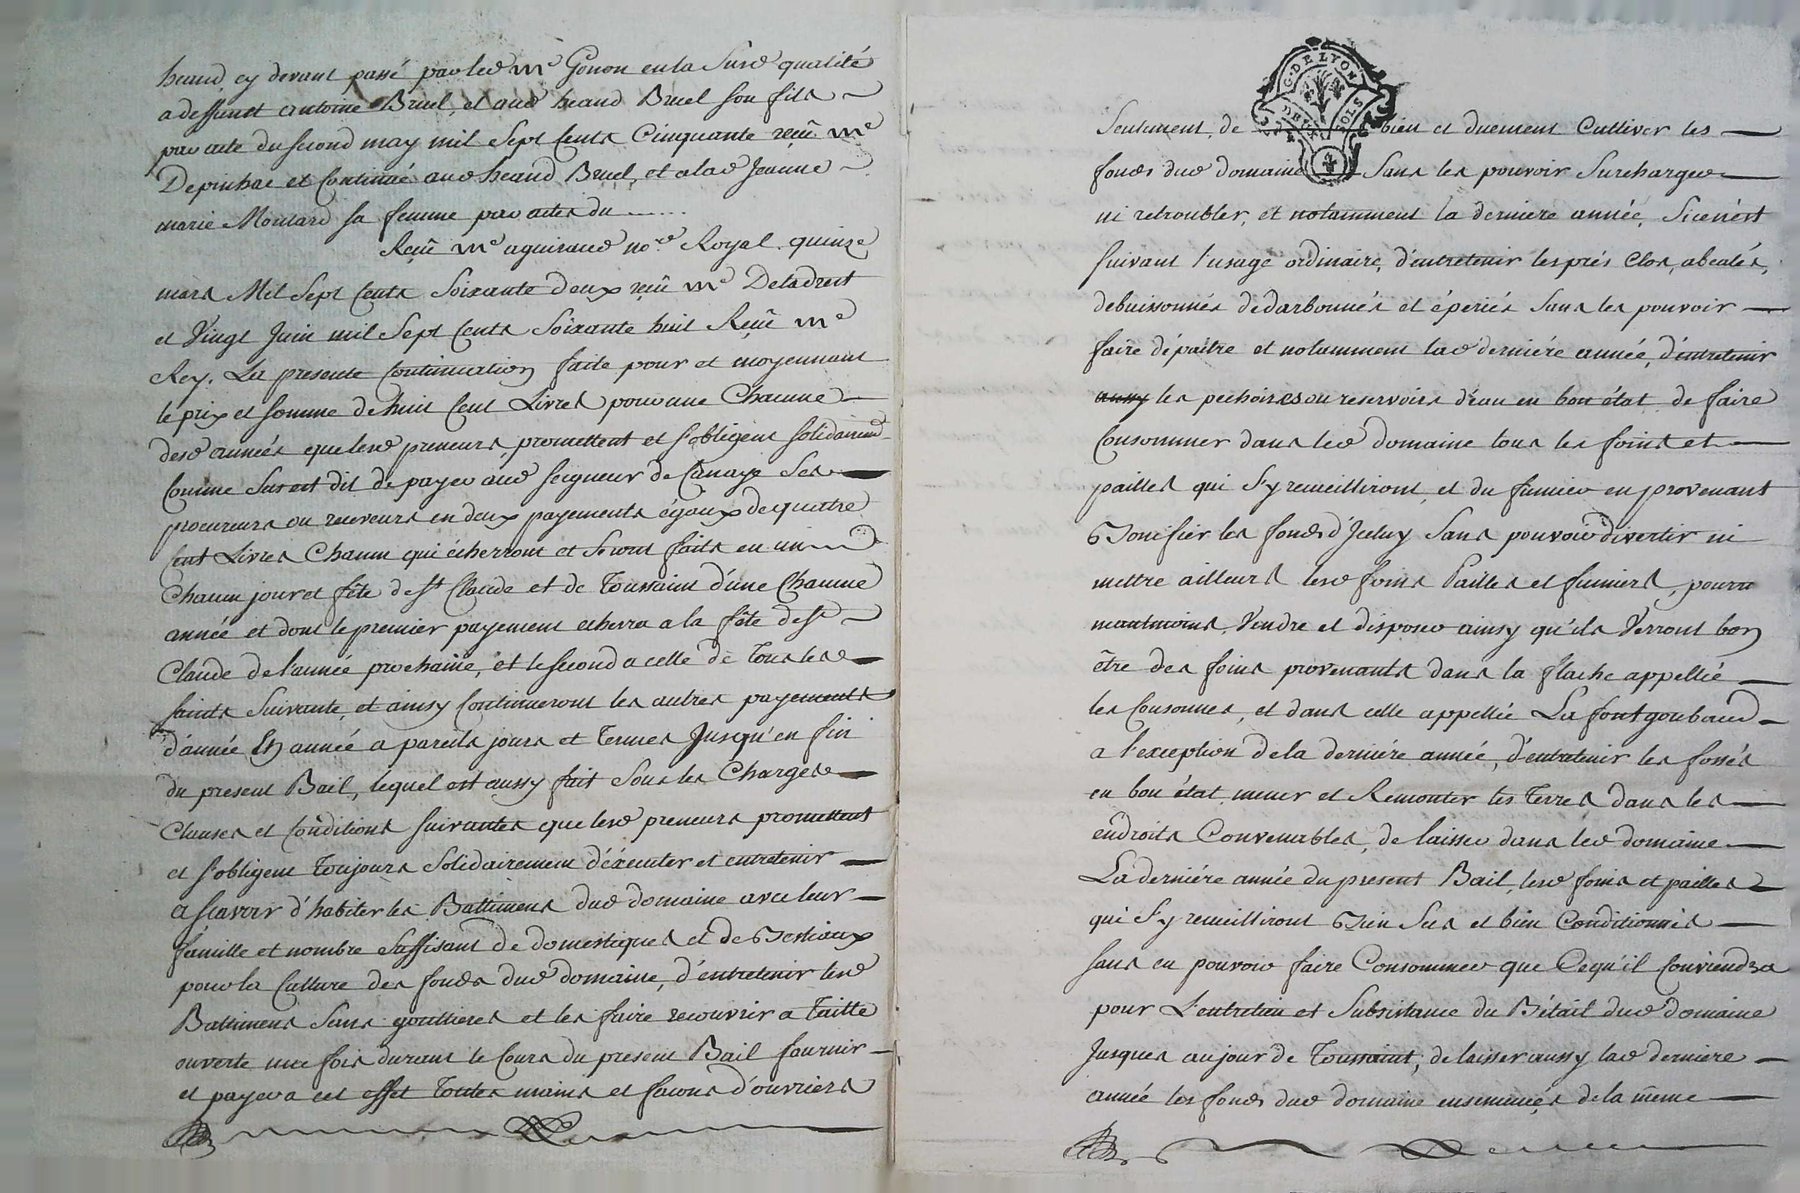 heaud, cy devant passé par led me Gonon en la Susd qualité
a deffunt antoine Bruel, et aud heaud Bruel son fils
par acte du second may mil Sept Cents Cinquante reçû me
Depinhac et Continué aud heaud Bruel, et a lad Jeanne
marie Moulard sa femme par actes du ......
Reçû me aguiraud nore Royal. quinze
mars Mil Sept Cents Soixante deux reçû me Deladret
et Vingt Juin mil Sept Cents Soixante huit Reçû me
Rey. La presente Continuation faite pour et moyennant
le prix et somme de huit Cent Livres pour une Chacune
desd années que lesd preneurs, promettent et s'obligent solidairemt
Comme Sus est dit de payer aud seigneur de Canaye Ses
procureurs ou receveurs en deux payements égaux de quatre
Cent Livres Chacun qui écherront et Seront faits en un
Chacun jour et fête de St Claude et de Toussaint d'une Chacune
année et dont le premier payement echerra a la fête de St
Claude de l'année prochaine, et le second a celle de Tous les
saints Suivante, et ainsy Continueront les autres payements
d'année En année a pareils jours et Termes Jusqu'en fin
du present Bail, lequel est aussy fait Sous les Charges
Clauses et Conditions suivantes que lesd preneurs promettent
et s'obligent Toujours Solidairement d'éxecuter et entretenir
a scavoir d'habiter les Battimens dud domaine avec leur
famille et nombre Suffisant de domestiques et de Bestiaux
pour la Culture des fonds dud domaine, d'entretenir lesd
Battimens Sans gouttieres et les faire recouvrir a Taille
ouverte une fois durant le Cours du present Bail fournir
et payer a cet effet Toutes mains et facons d'ouvriers
C. DE LYON
DEUX SOLS
Seulement, de bien et duement Cultiver les
fonds dud domaine Sans les pouvoir Surcharger
ni retroubler, et notamment la derniere année, Si ce n'est
suivant l'usage ordinaire, d'entretenir les prés Clos, abealés,
debuissonnés dedarbonnés et épériés Sans les pouvoir
faire dépaître et notamment lad derniére année, d'entretenir
aussy les pechoires ou reservoirs d'eau en bon état, de faire
Consommer dans led domaine tous les foins et
pailles qui s'y recueilliront, et du fumier en provenant
Bonifier les fonds d'Iceluy Sans pouvoir divertir ni
mettre ailleurs lesd foins Pailles et fumiers, pourra
neantmoins, Vendre et disposer ainsy qu'ils Verront bon
être des foins provenants dans la flache appellée
les Cousonnes, et dans celle appellée La fontgoubaud
a l'exception de la derniére année, d'entretenir les fossés
en bon état, mener et Remonter les Terres dans les
endroits Convenables, de laisser dans led domaine
La derniére année du present Bail, lesd foins et pailles
qui s'y recueilliront Bien Secs et bien Conditionnés
sans en pouvoir faire Consommer que Ce qu'il Conviendra
pour L'entretien et Subsistance du Bétail dud domaine
Jusques au jour de Toussaint, de laisser aussy lad derniere
année les fonds dud domaine ensemencés de la même